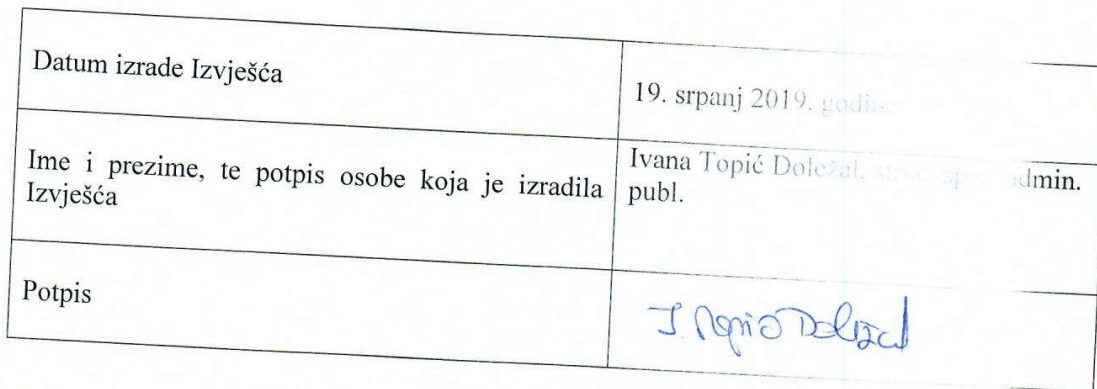 Datum izrade Izvješća
19. srpanj 2019. godine
Ime i prezime, te potpis osobe koja je izradila
Izvješća
Ivana Topić Doležal, struč. spec. admin.
publ.
Potpis
I. Topić Doležal